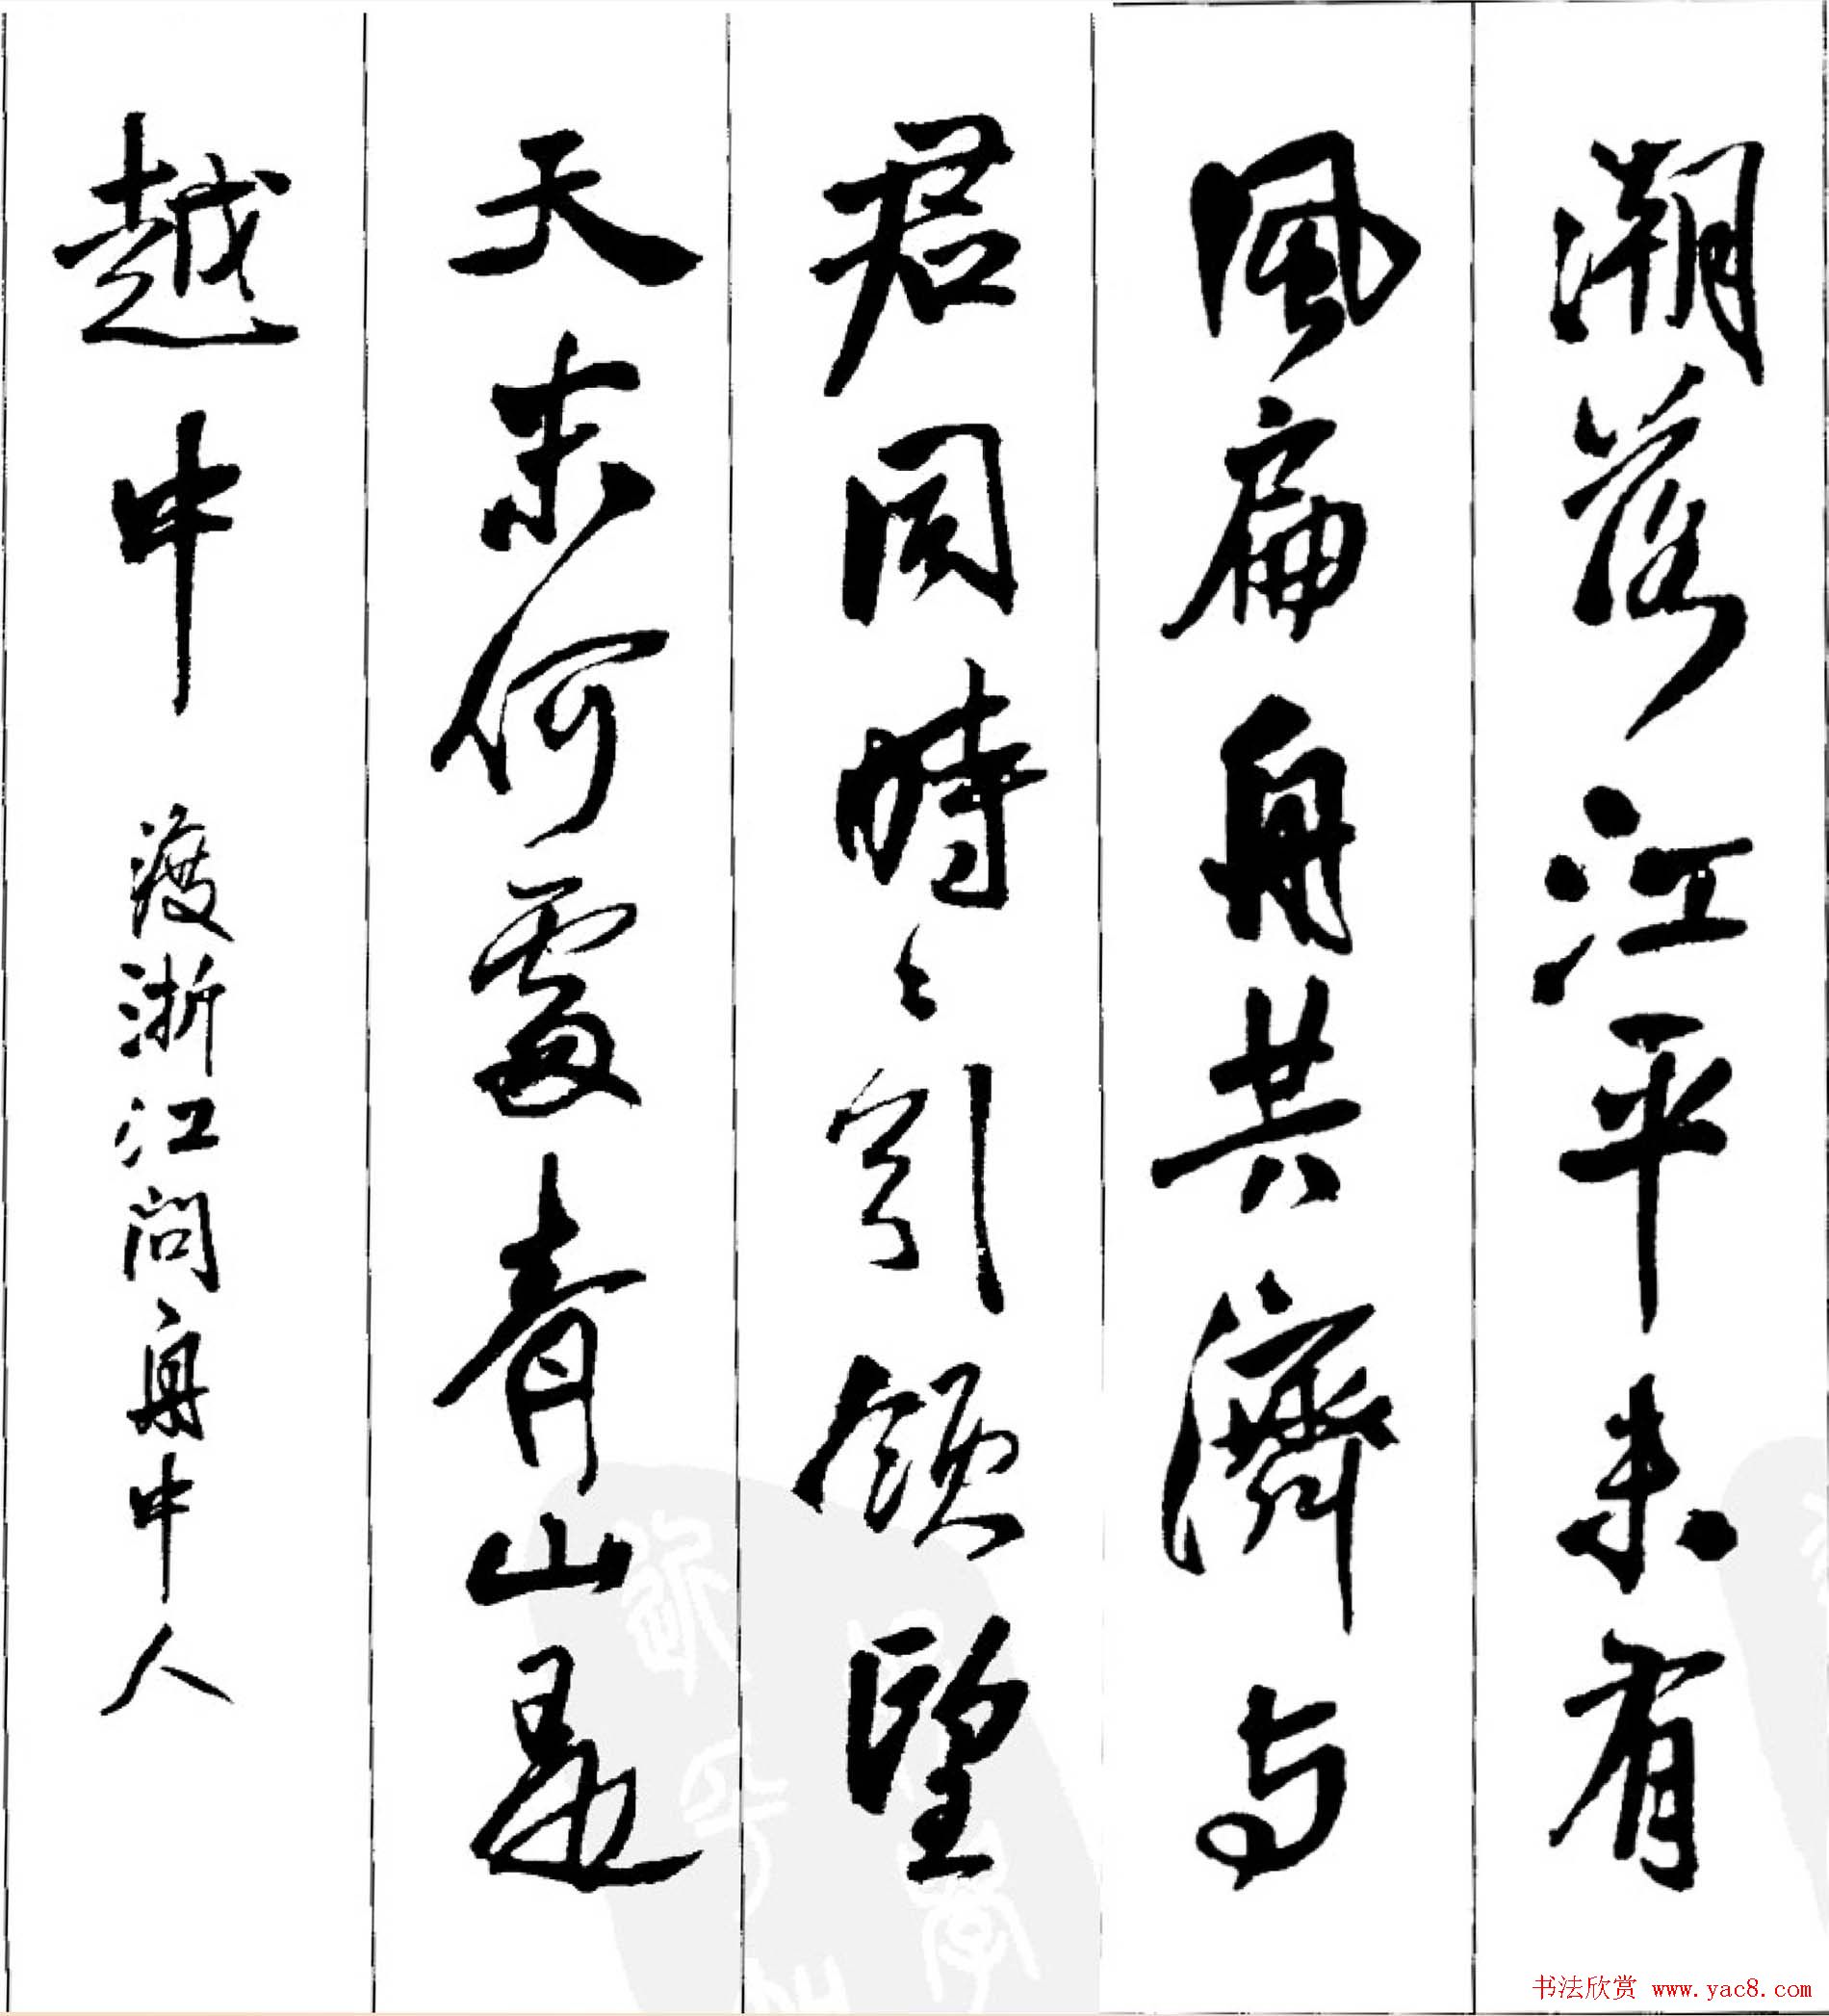 潮落江平未有
風扁舟共濟與
君同時時引領望
天末何處青山是
越中
渡浙江問舟中人
书法欣赏 www.yac8.com